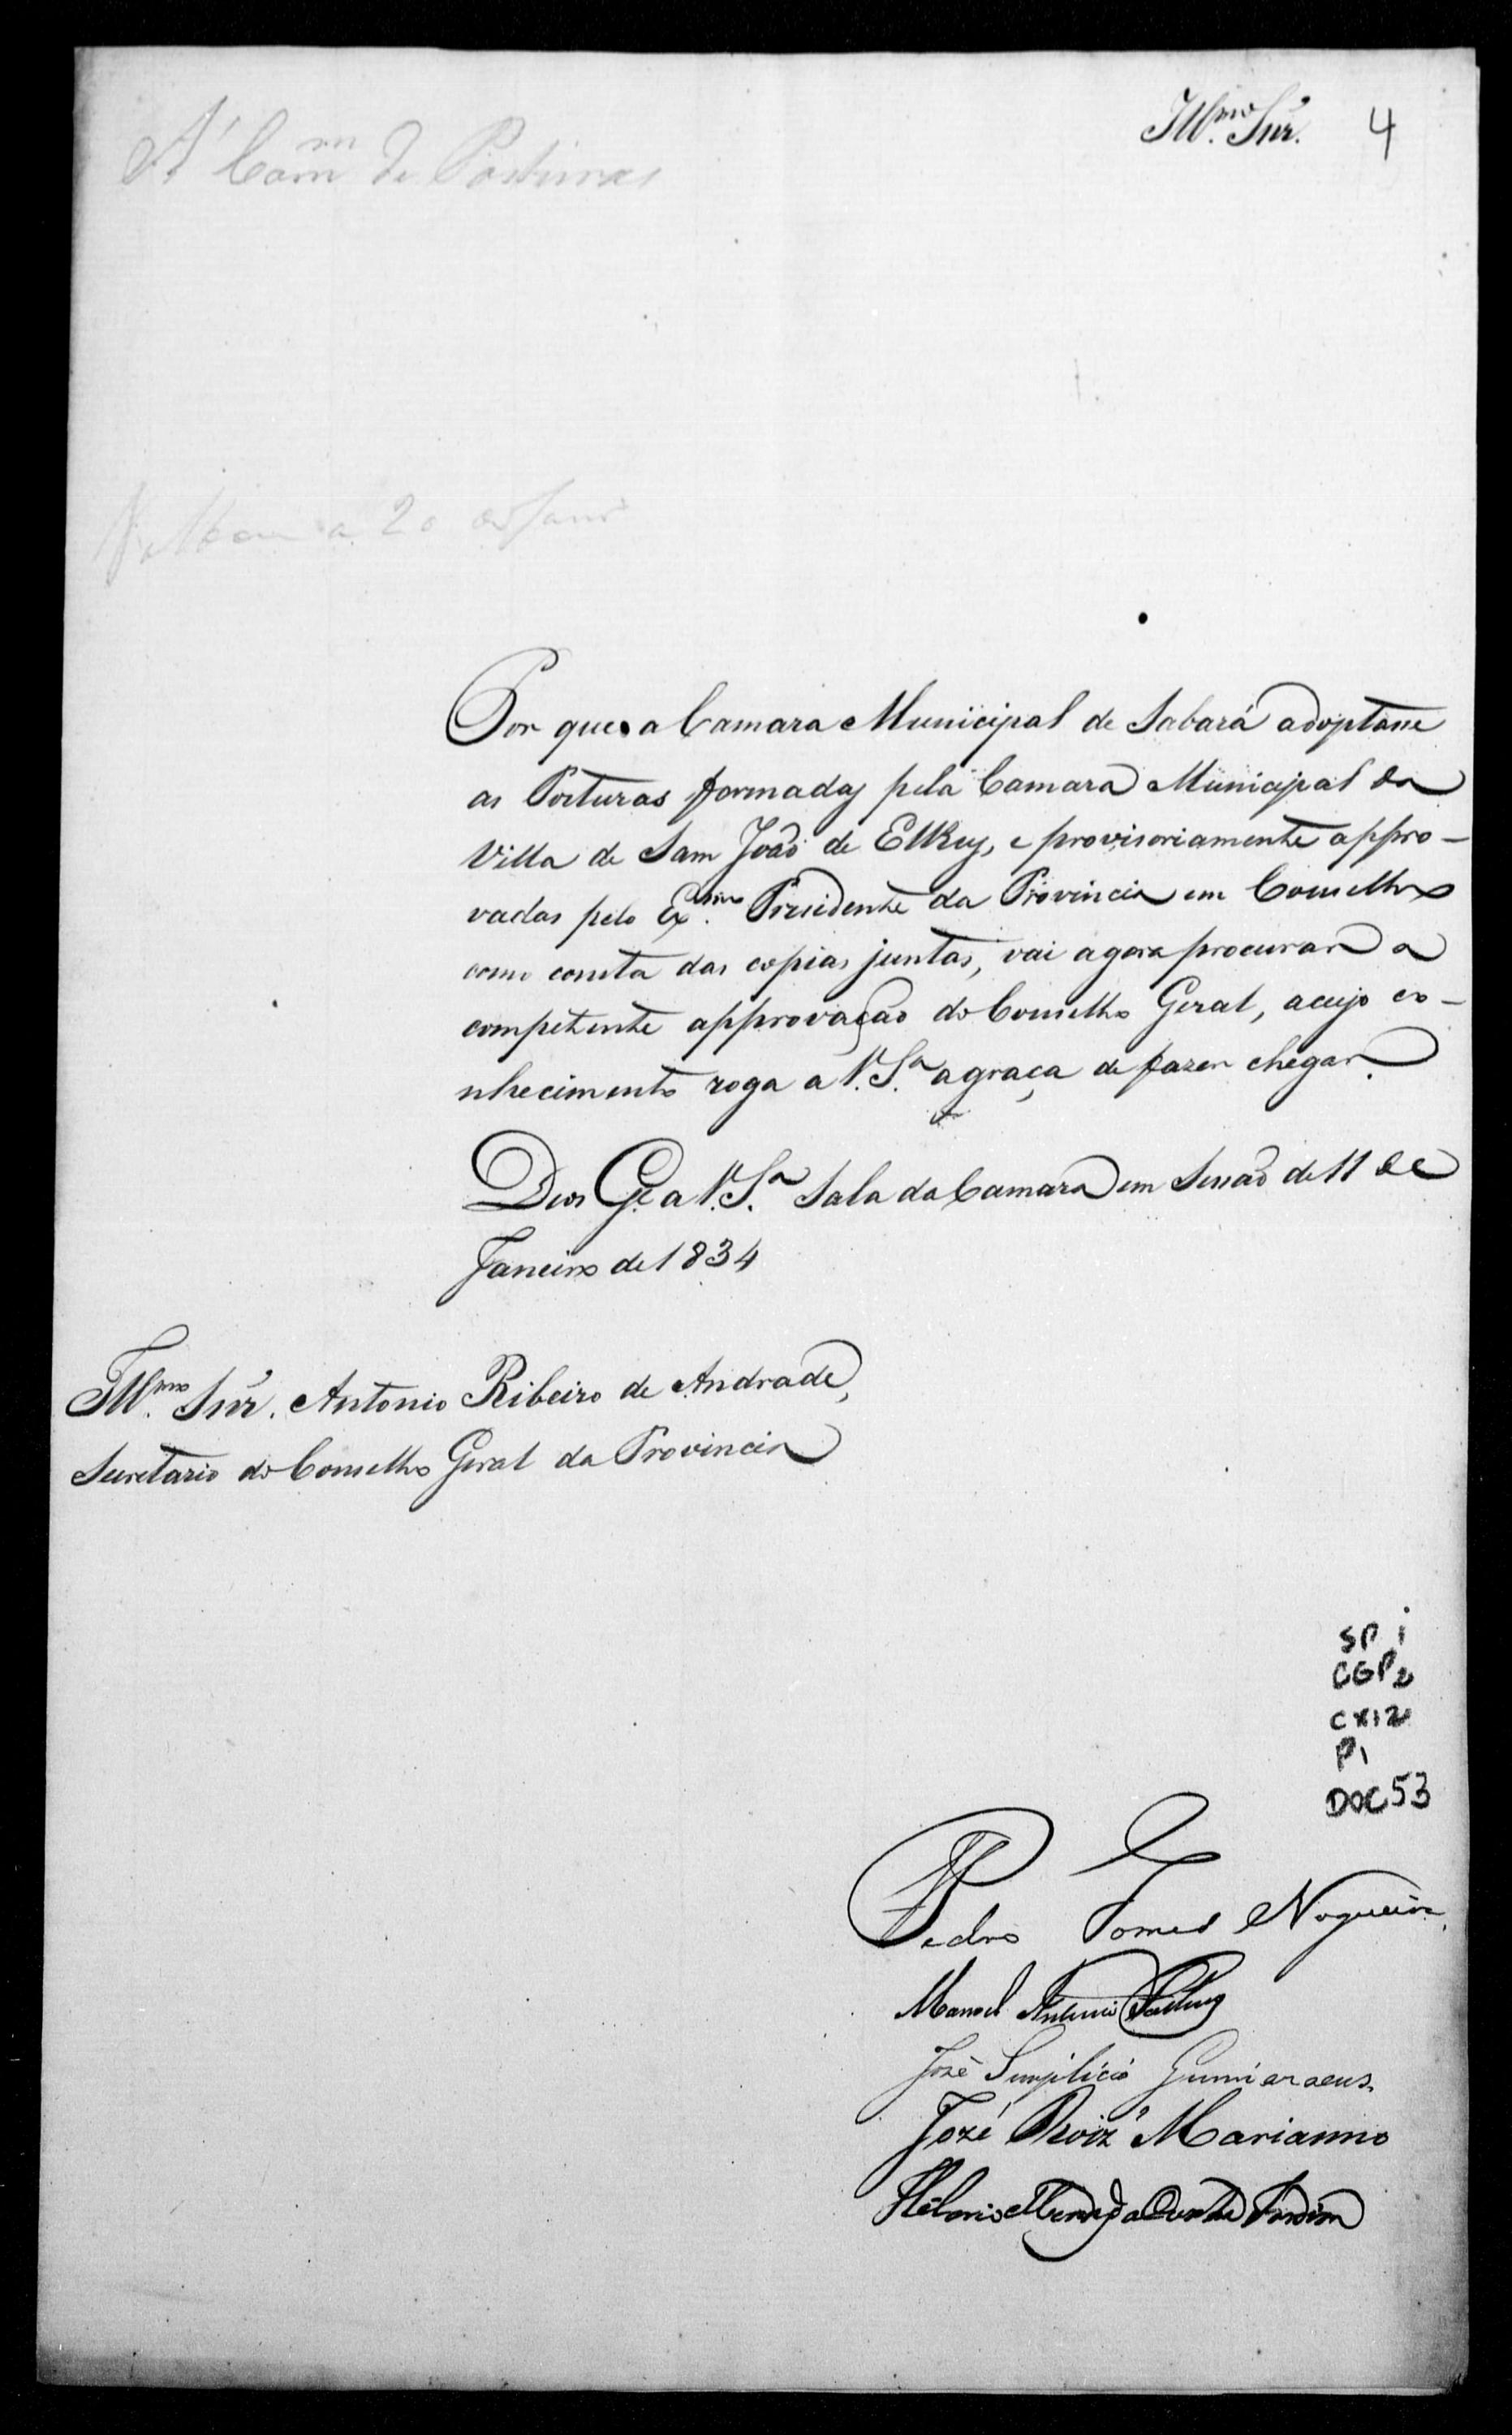 Illmo. Snr. 4
A' Comm de Posturas
a 20 de Janro
Por que a Camara Municipal de Sabará adoptasse
as Posturas formadas pela Camara Municipal da
Villa de Sam João de ElRey, e provisoriamente appro-
vadas pelo Exmo. Presidente da Provincia em Conselho
como consta das copias juntas, vai agora procurar a
competente approvação do Conselho Geral, a cujo co-
nhecimento roga a V.Sa. a graça de fazer chegar.
Deos Ge. a V.Sa. Sala da Camara em Sessão de 11 de
Janeiro de 1834
Illmo. Snr. Antonio Ribeiro de Andrade,
Secretario do Conselho Geral da Provincia
SP 1
CGP2
CX12
P1
DOC 53
Pedro Gomes Nogueira
Manoel Antonio
José Simplicio Guimaraens
Jozé Roiz Marianno
da Cunha Jardim